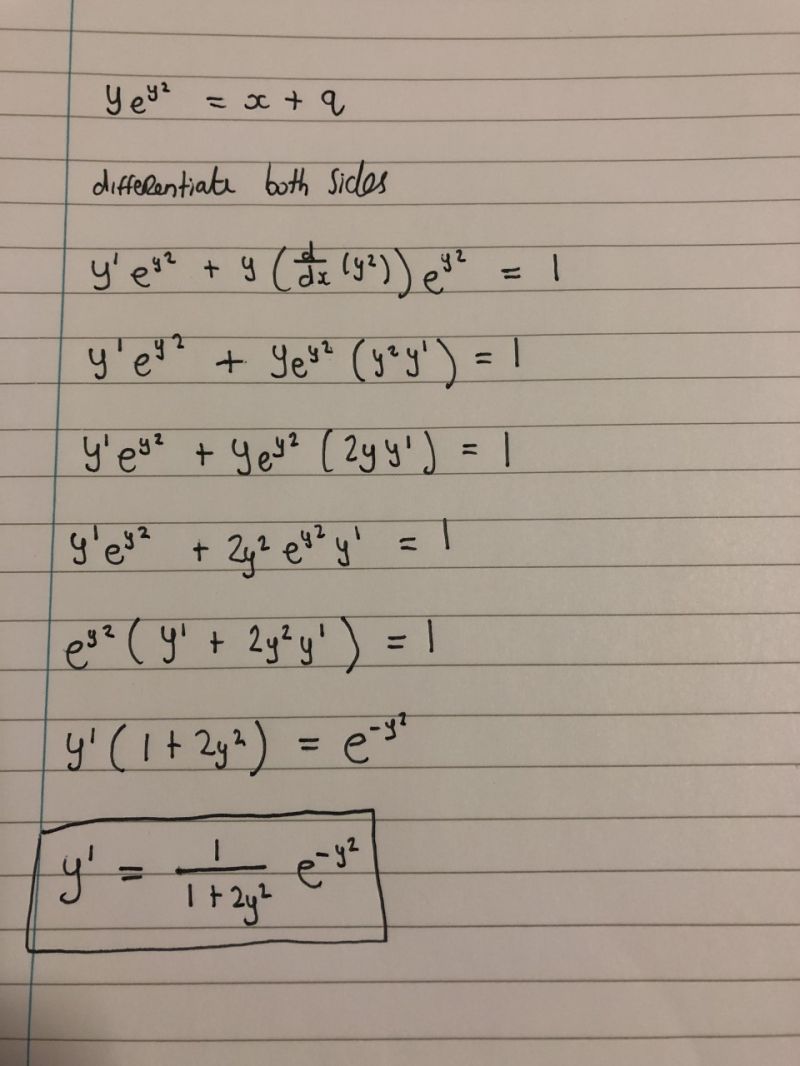 y e^{y^2} = x + q
differentiate both sides
y' e^{y^2} + y (\frac{d}{dx} (y^2)) e^{y^2} = 1
y' e^{y^2} + y e^{y^2} (y^2 y') = 1
y' e^{y^2} + y e^{y^2} (2y y') = 1
y' e^{y^2} + 2y^2 e^{y^2} y' = 1
e^{y^2} ( y' + 2y^2 y' ) = 1
y' ( 1 + 2y^2 ) = e^{-y^2}
y' = \frac{1}{1 + 2y^2} e^{-y^2}